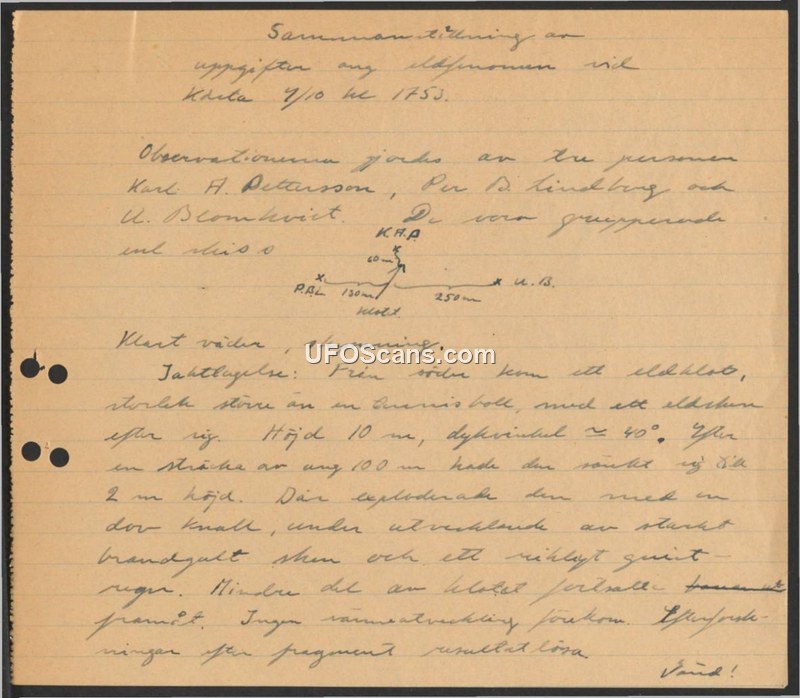 Sammanställning av
uppgifter ang eldfenomen vid
7/10 kl 1753.
Observationerna gjordes av tre personer
Karl A. Pettersson, Per B. Lindberg och
U. Blomkvist. De voro grupperade
enl skiss
K.A.P.
60 m
P.B.L 130m 250m U.B.
klot.
Klart väder, skymning.
UFOScans.com
Iakttagelse: Från söder kom ett eldklot,
storlek större än en tennisboll, med ett eldsken
efter sig. Höjd 10 m, dykvinkel ≃ 40°. Efter
en sträcka av ung 100 m hade den sänkt sig till
2 m höjd. Där exploderade den med en
dov knall, under utvecklande av starkt
brandgult sken och ett rikligt gnist-
regn. Mindre del av klotet fortsatte
framåt. Ingen värmeutveckling förekom. Efterforsk-
ningar efter fragment resultatlösa.
Vänd!